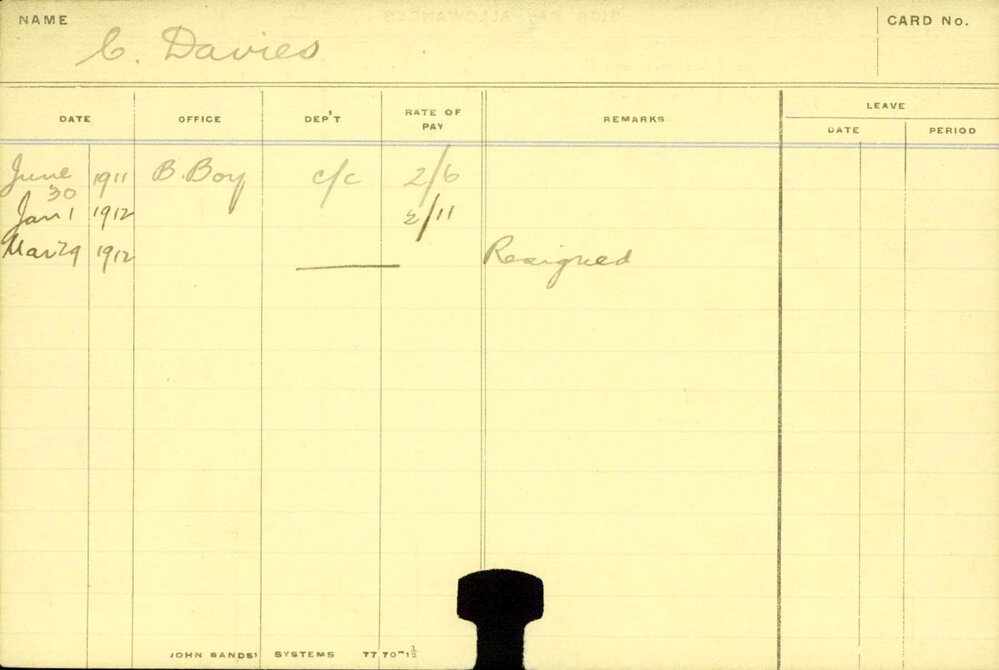 NAME
C. Davies
CARD No.
DATE OFFICE DEP'T RATE OF PAY REMARKS LEAVE
DATE PERIOD
June 30 1911 B. Boy c/c 2/6
Jan 1 1912 2/11
Mar 29 1912 Resigned
JOHN SANDS' SYSTEMS 77 70-1½